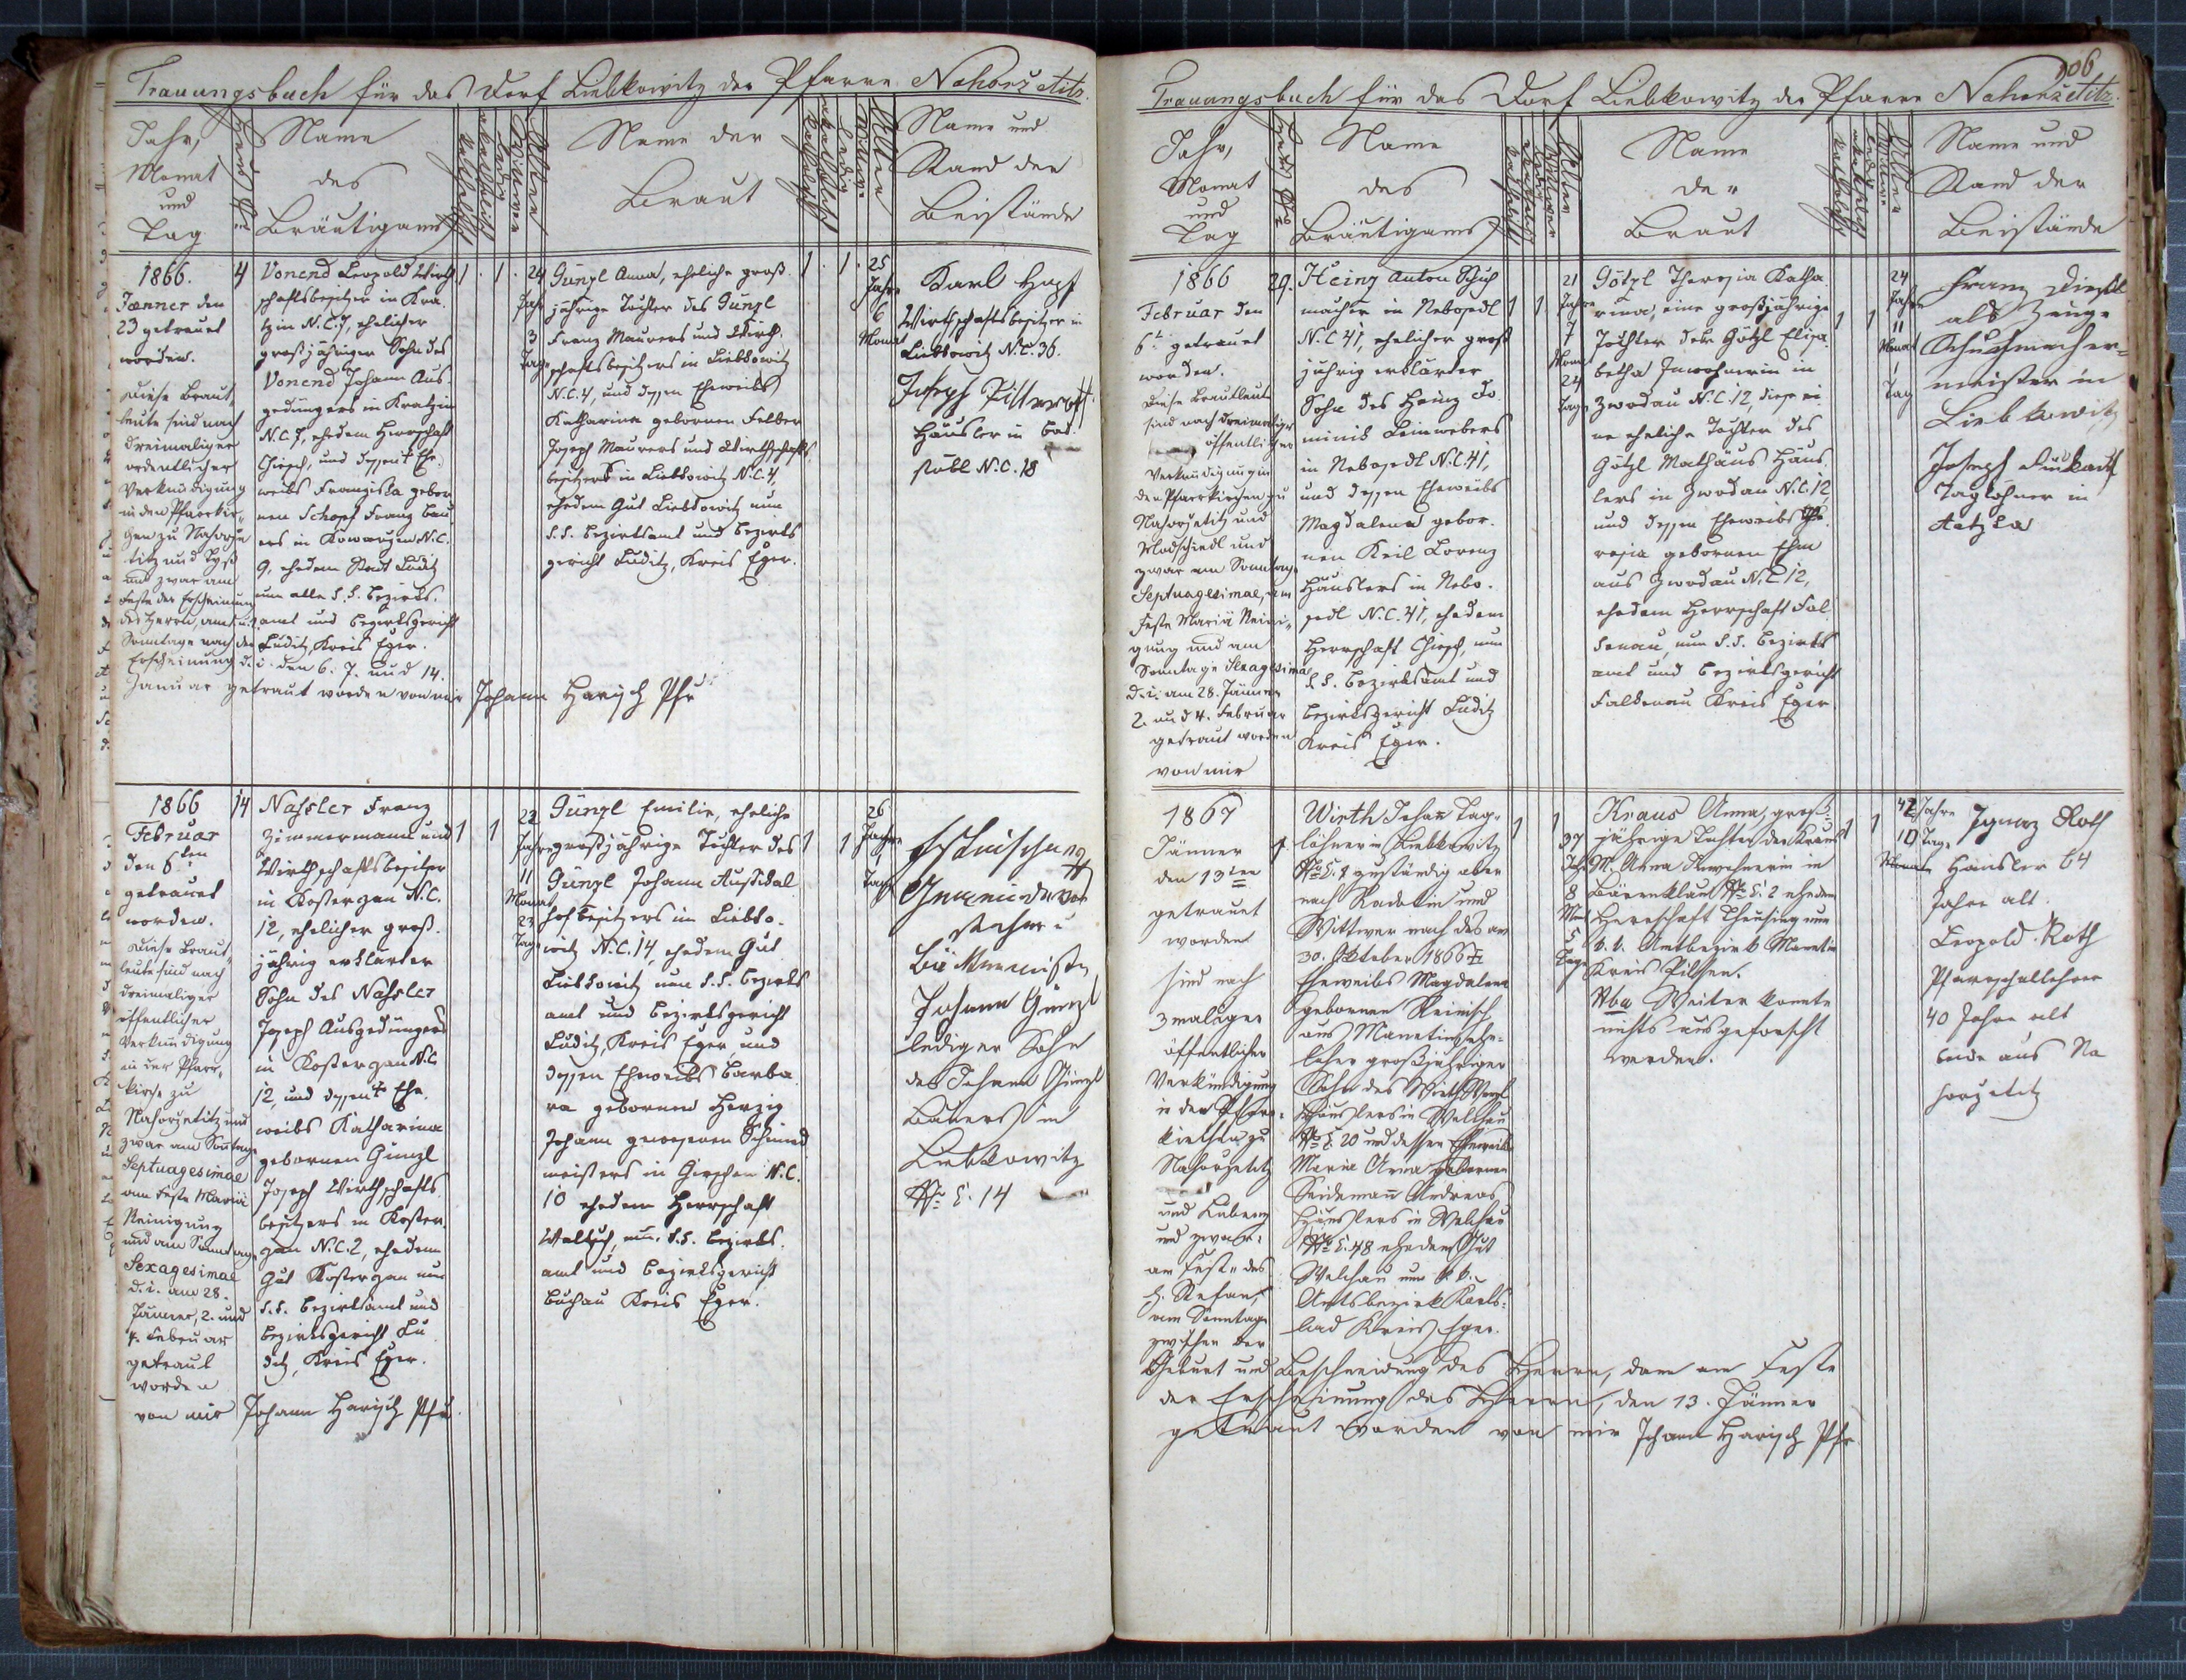 Trauungsbuch für das Dorf Liebkowitz der Pfarre Nahorzetitz.
Jahr,
Monat
und
Tag
Name
des
Bräutigams
Name der
Braut
Name und
Stand der
Beistände
1866.
Jänner den
23 getrauet
worden.
Diese Braut-
leute sind nach
dreimaliger
ordentlicher
Verkündigung
in den Pfarrkir-
chen zu Nahorze-
titz und
und zwar am
Feste der Erscheinung
des Herrn, am u.
Sonntage nach der
Erscheinung d. i. den 6. 7. und 14.
Januar getraut worden von mir Johann Harisch Pfr
4
Vonend Leopold Wirth-
schaftsbesitzer in Kra-
tzin N.C. 7, ehelicher
großjähriger Sohn des
Vonend Johann Aus-
gedingers in Kratzin
N.C. 7, ehedem Herrschaft
Chiesch, und dessen † Ehe-
weibs Franziska gebor-
nen Schopf Franz Bau-
ers in Kowarzen N.C.
9, ehedem Stadt Luditz
nun alle k.k. Bezirks-
amt und Bezirksgericht
Luditz, Kreis Eger.
1 1 24
Jahr
3
Tage
Günzl Anna, eheliche groß-
jährige Tochter des Günzl
Franz Maurers und Wirth-
schaftsbesitzers in Liebkowitz
N.C. 4, und dessen Eheweibs
Katharina gebornen Felber
Joseph Maurers und Wirthschafts-
besitzers in Liebkowitz N.C. 4,
ehedem Gut Liebkowitz nun
k.k. Bezirksamt und Bezirks-
gericht Luditz, Kreis Eger.
1 1 25
Jahre
6
Monat
Karl Hopf
Wirthschaftsbesitzer in
Liebkowitz N.C. 36.
Joseph
Häusler in
N.C. 18
1866
Februar
den 6ten
getrauet
worden.
Diese Braut-
leute sind nach
dreimaliger
öffentlicher
Verkündigung
in der Pfarr-
kirche zu
Nahorzetitz und
zwar am Sonntage
Septuagesimae
am Feste Mariä
Reinigung
und am Sonntage
Sexagesimae
d. i. am 28.
Jänner, 2. und
4. Februar
getraut
worden
von mir Johann Harisch Pfr
14
Nassler Franz
Zimmermann und
Wirthschaftsbesitzer
in Kosterzan N.C.
12, ehelicher groß-
jährig erklärter
Sohn des Nassler
Joseph Ausgedingers
in Kosterzan N.C.
12, und dessen † Ehe-
weibs Katharina
gebornen Günzl
Joseph Wirthschafts-
besitzers in Koster-
zan N.C. 2, ehedem
Gut Kosterzan nun
k.k. Bezirksamt und
Bezirksgericht Lu-
ditz, Kreis Eger.
1 1 22
Jahre
11
Monat
23
Tage
Günzl Emilie, eheliche
großjährige Tochter des
Günzl Johann
hofbesitzers in Liebko-
witz N.C. 14, ehedem Gut
Liebkowitz nun k.k. Bezirks-
amt und Bezirksgericht
Luditz, Kreis Eger und
dessen Eheweibs Barba-
ra gebornen Herzig
Johann gewesenen Schmied-
meisters in Girschen N.C.
10 ehedem Herrschaft
nun k.k. Bezirks-
amt und Bezirksgericht
Buchau Kreis Eger.
1 1 26
Jahre
1
Tag
Gemeindevor-
steher
Johann Günzl
lediger Sohn
des Johann Günzl
Bauers in
Liebkowitz
No C. 14
106
Trauungsbuch für das Dorf Liebkowitz der Pfarre Nahorzetitz.
Jahr,
Monat
und
Tag
Name
des
Bräutigams
Name
der
Braut
Name und
Stand der
Beistände
1866
Februar den
6t getrauet
worden.
Diese Brautleute
sind nach dreimaliger
öffentlicher
Verkündigung in
den Pfarrkirchen zu
Nahorzetitz und
Modschiedl und
zwar am Sonntage
Septuagesimae, am
Feste Mariä Reini-
gung und am
Sonntage Sexagesima
d. i. am 28. Jänner
2. und 4. Februar
getraut worden
von mir
29.
Heinz Anton Schuh-
macher in Nebosedl
N.C. 41, ehelicher groß-
jährig erklärter
Sohn des Heinz Do-
minik Leinwebers
in Nebosedl N.C. 41,
und dessen Eheweibs
Magdalena gebor-
nen Keil Lorenz
Häuslers in Nebo-
sedl N.C. 41, ehedem
Herrschaft Chiesch, nun
k.k. Bezirksamt und
Bezirksgericht Luditz
Kreis Eger.
1 1 21
Jahre
7
Monat
24
Tage
Götzl Theresia Katha-
rina, eine großjährige
Tochter der Götzl Elisa-
betha Inwohnerin in
Zwodau N.C. 12, diese ei-
ne eheliche Tochter des
Götzl Mathäus Häus-
lers in Zwodau N.C. 12
und dessen Eheweibs The-
resia gebornen Ehm
aus Zwodau N.C. 12,
ehedem Herrschaft Fal-
kenau, nun k.k. Bezirks-
amt und Bezirksgericht
Falkenau Kreis Eger.
1 1 24
Jahre
11
Monat
1
Tag
Franz
als Zeuge
Schuhmacher-
meister in
Liebkowitz
Joseph
Taglöhner in
1867
Jänner
den 13ten
getrauet
worden
sind nach
3maliger
öffentlicher
Verkündigung
in der Pfarr-
kirche zu
Nahorzetitz
und Lubenz
und zwar:
am Feste des
h. Stefan,
am Sonntage
zwischen der
Geburt und Beschneidung des Herrn, dann am Feste
der Erscheinung des Herrn, den 13. Jänner
getraut worden von mir Johann Harisch Pfr
Wirth Johann Tag-
löhner in Liebkowitz
No C. 7 zuständig aber
nach Radotin und
Wittwer nach des am
30. Oktober 1866 †
Eheweibs Magdalena
gebornen Reinisch
aus Manetin ehe-
licher großjähriger
Sohn des Wirth
Häuslers in Welchau
No C. 20 und dessen Eheweibs
Maria Anna gebornen
Seidemann Andreas
Häuslers in Welchau
No C. 48 ehedem Gut
Welchau nun k.k.
Amtsbezirk Karls-
bad Kreis Eger.
1 1
37
Jahr
8
Mon.
5
Tage
Kraus Anna, groß-
jährige Tochter der Kraus
M. Anna Inwohnerin in
Bärenklau No C. 2 ehedem
Herrschaft Theusing nun
k.k. Amtbezirk Manetin
Kreis Pilsen.
Nba Weiter konnte
nichts ausgeforscht
werden.
1 1 42 Jahre
10 Tage
Ignaz Roth
Häusler 64
Jahre alt.
Leopold Roth
Pfarrschullehrer
40 Jahre alt
beide aus Na-
horzetitz